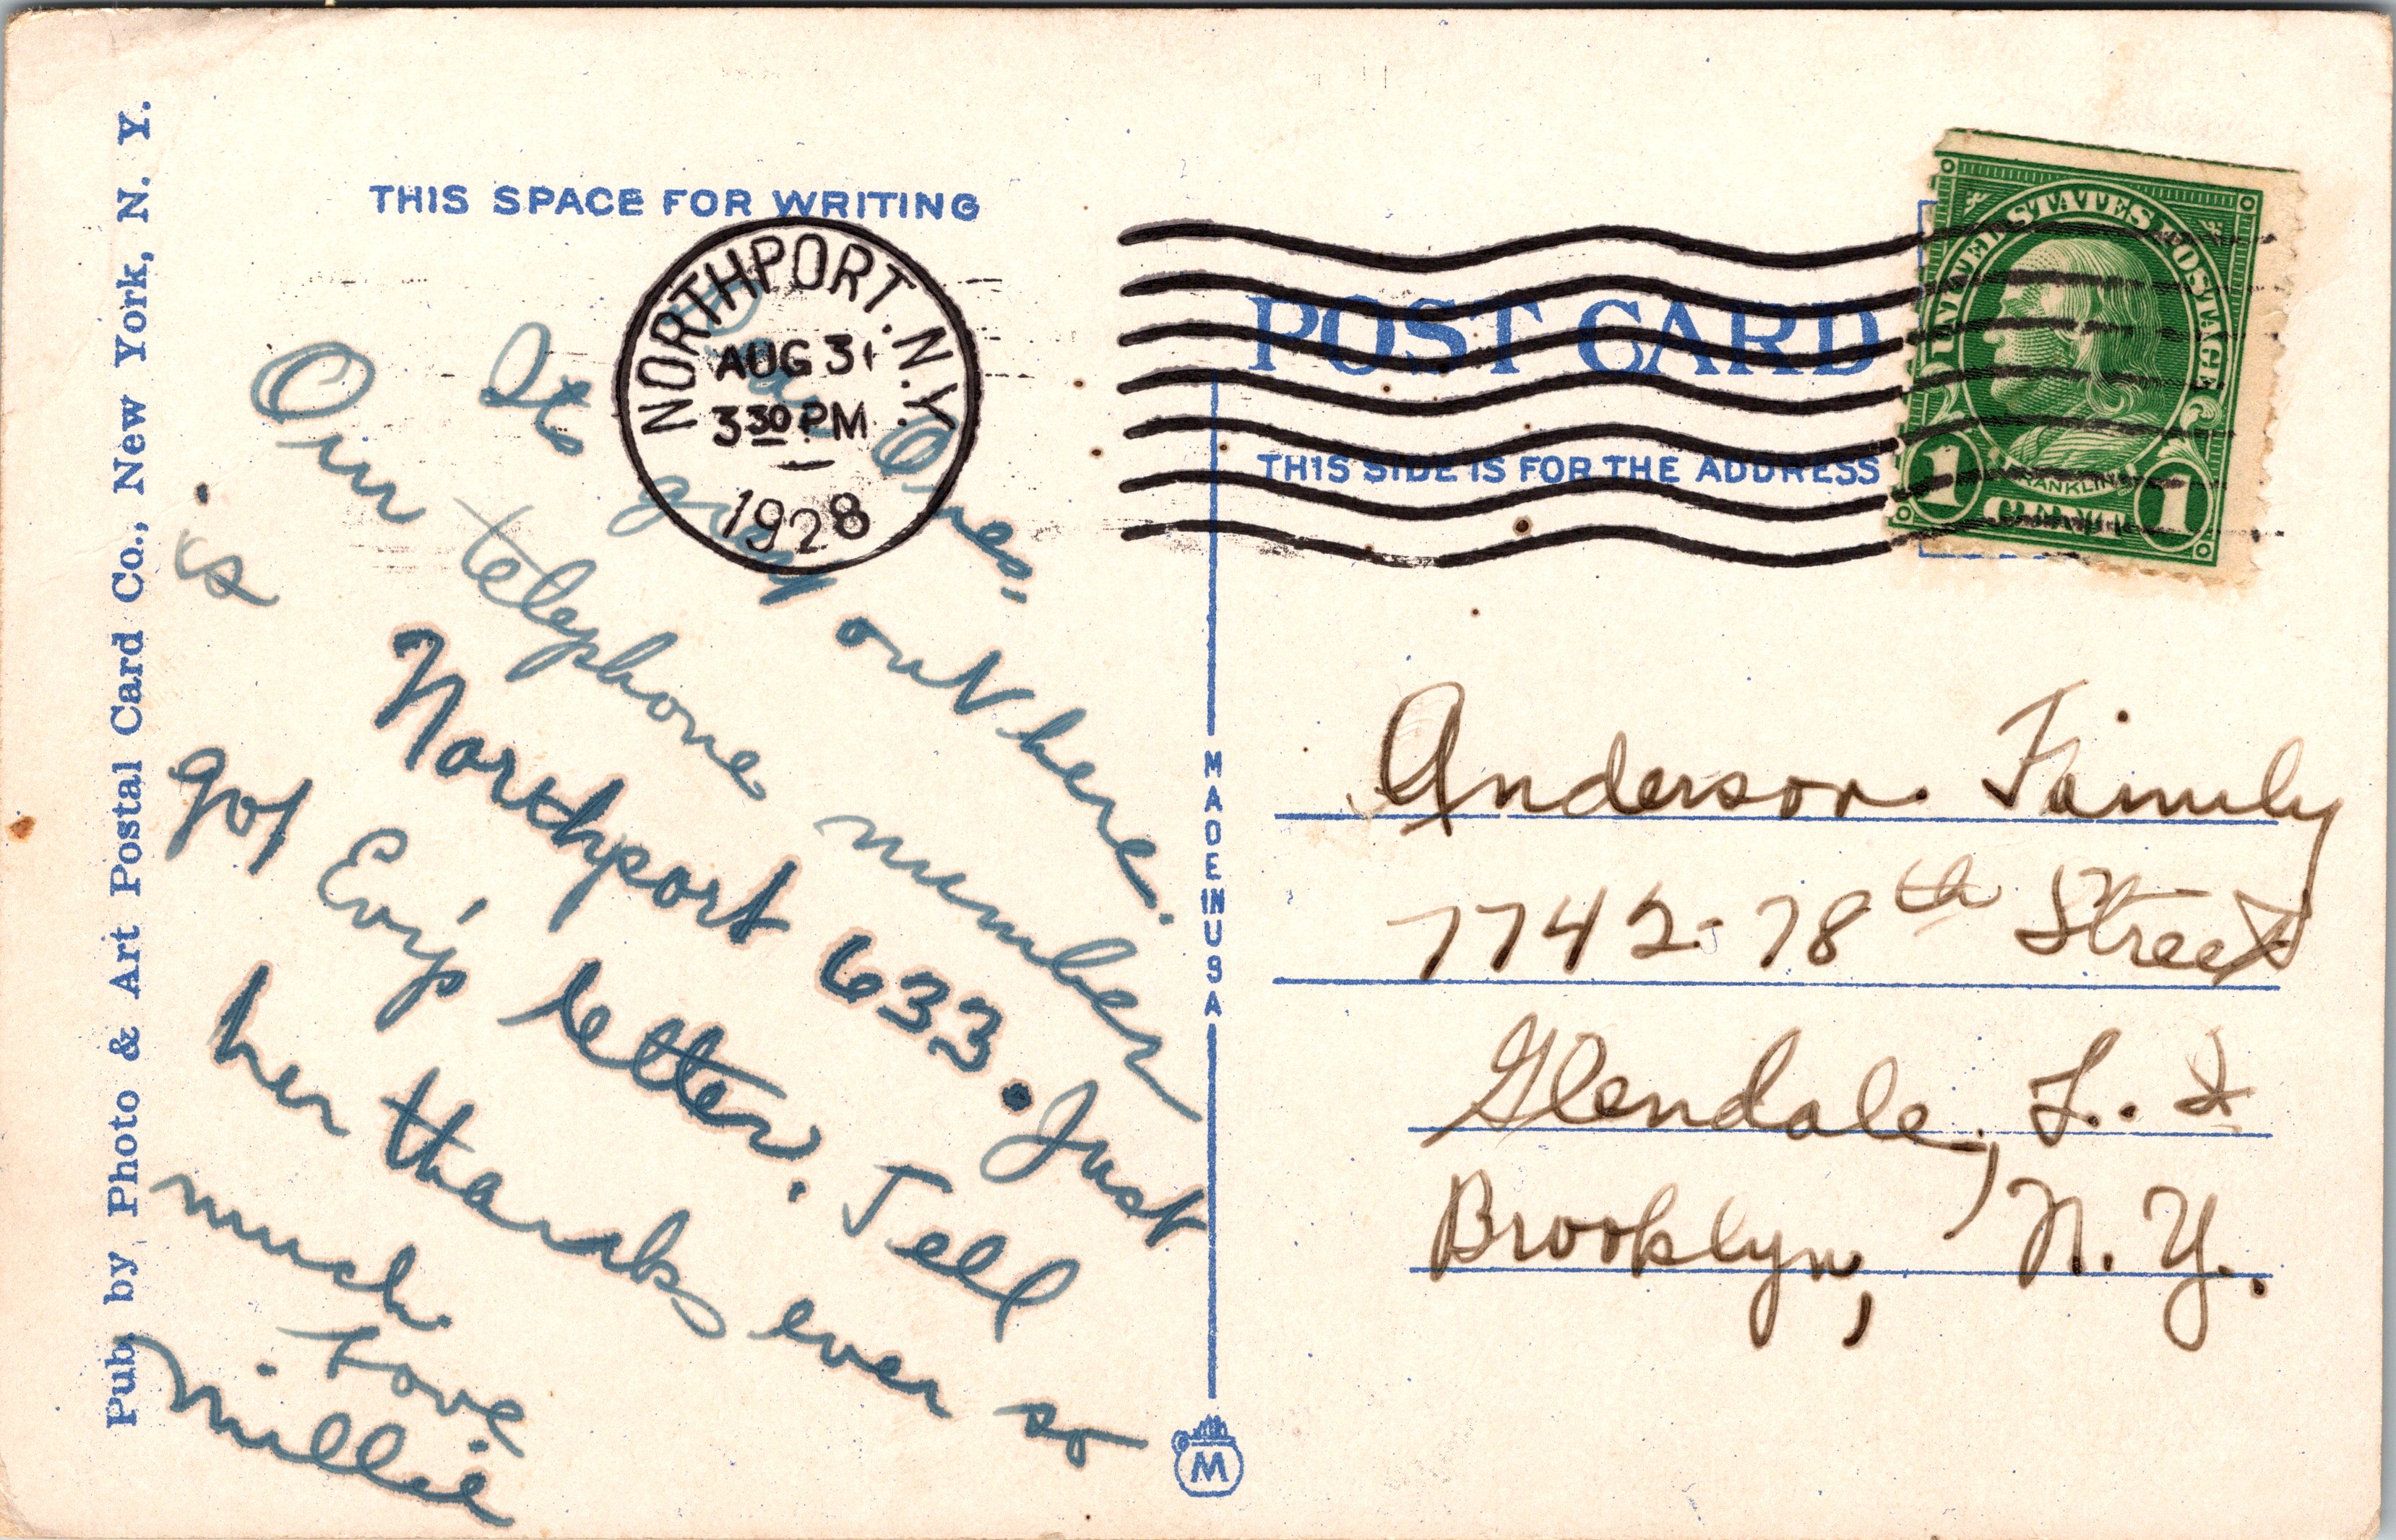 Pub. by Photo & Art Postal Card Co., New York, N. Y.
THIS SPACE FOR WRITING
NORTHPORT. N.Y.
AUG 31
3 30 PM
1928
Ones-
Its out here.
Our telephone number
is Northport 633. Just
got Evy's letter. Tell
her thanks ever so
much.
Love
Millie
MADE IN USA
M
POST CARD
THIS SIDE IS FOR THE ADDRESS
UNITED STATES POSTAGE
FRANKLIN
1 1
Anderson Family
7742-78th Street
Glendale, L. I
Brooklyn, N. Y.